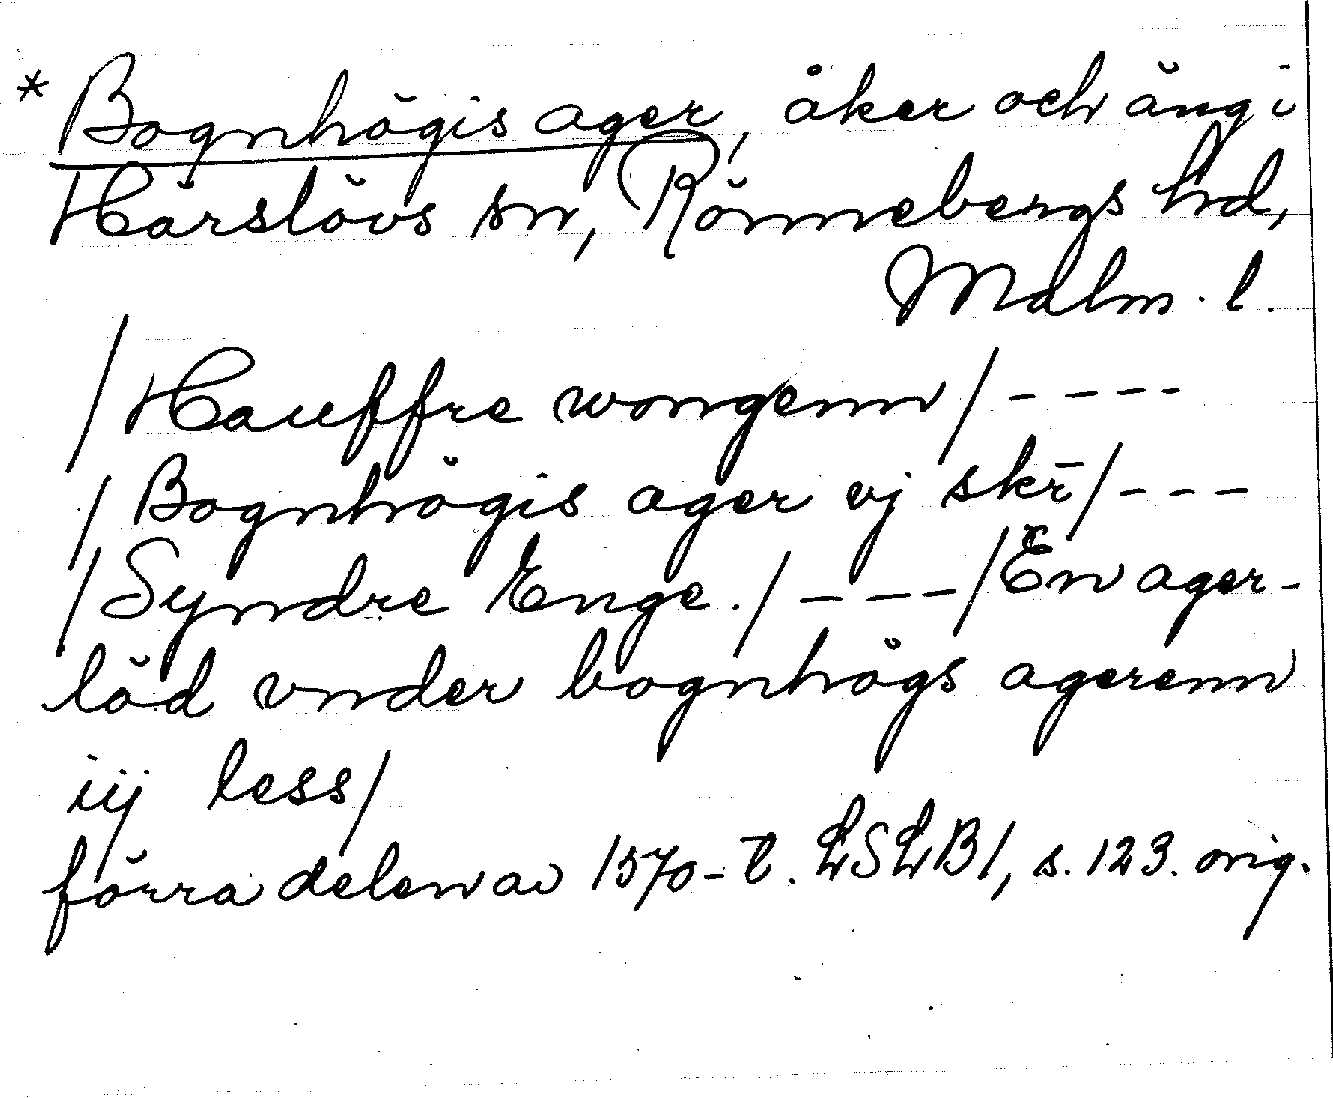 * Bognhögis ager, åker och äng i
Härslövs sn, Rönnebergs hd,
Malm. l.
/Hauffre wongenn/ - - - -
/Bognhögis ager vj skr̄/ - - -
/Syndre Enge./ - - - /En ager-
löd vnder bognhögs agerenn
iij less/
förra delen av 1570-t. LSLB1, s. 123. orig.